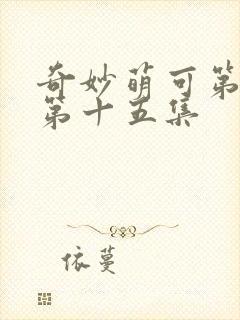 奇妙萌可第
第十五集
依蔓